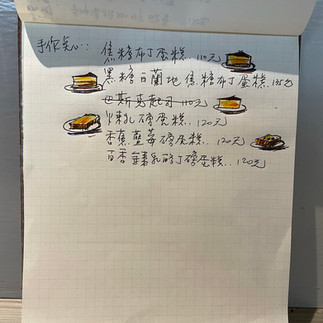 手作点心:
焦糖布丁蛋糕..110元
黑糖白蘭地焦糖布丁蛋糕..135元
巴斯克起司..110元
煉乳磅蛋糕..120元
香蕉藍莓磅蛋糕..120元
百香 煉乳 磅蛋糕..120元